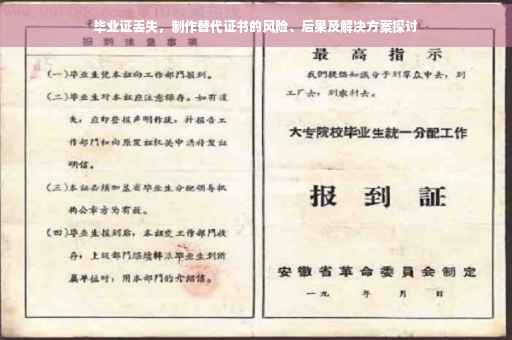 毕业证丢失，制作替代证书的风险、后果及解决方案探讨
报到注意事项
(一)毕业生凭本证向工作部门报到。
(二)毕业生对本证应注意保存。如有遗
失，应即登报声明作废，并报告工
作部门和向原发证机关申请补发证
明信。
(三)本证必须加盖省毕业生分配领导机
构公章方为有效。
(四)毕业生报到后，本证交工作部门收
存；上级部门继续转派毕业生到所
属单位时，用本部门的介绍信。
最高指示
我们提倡知识分子到群众中去，到
工厂去，到农村去。
大专院校毕业生統一分配工作
报到証
安徽省革命委員会制定
一九 年 月 日